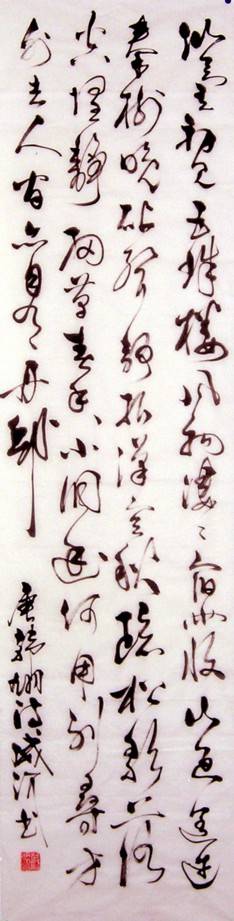 仙臺初见五城樓风物凄々宿雨收山色遥连
秦树晚砧聲静报漢宫秋疏松影落
空壇静细草春香小洞幽何用别尋方
外去人间亦自有丹邱
唐韩翃诗 书